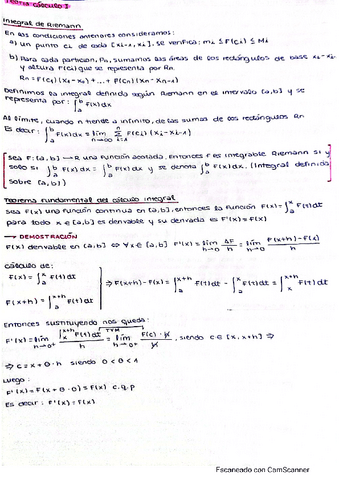 Teoría cálculo I
Integral de Riemann
En las condiciones anteriores consideramos:
a) un punto ci de cada [xi-1, xi], se verifica: mi ≤ F(ci) ≤ Mi
b) Para cada partición, Pn, sumamos las áreas de los rectángulos de base xi-xi-1
y altura F(ci) que se representa por Rn
Rn = F(c1)(x1-x0) + ... + F(cn)(xn-xn-1)
Definimos la integral definida según Riemann en el intervalo [a,b] y se
representa por: ∫ₐᵇ F(x)dx
Al límite, cuando n tiende a infinito, de las sumas de los rectángulos Rn
Es decir: ∫ₐᵇ F(x)dx = lím n→∞ Σ i=1 n F(ci)(xi-xi-1)
Sea F: [a,b] → R una función acotada, entonces F es integrable Riemann si y
solo si ∫ₐᵇ F(x)dx = ∫ₐᵇ F(x)dx y se denota ∫ₐᵇ F(x)dx. (Integral definida
sobre [a,b])
Teorema fundamental del cálculo integral
Sea F(x) una función continua en [a,b], entonces la función F(x) = ∫ₐˣ F(t)dt
para todo x ∈ [a,b] es derivable y su derivada es F'(x) = F(x)
→ DEMOSTRACIÓN
F(x) derivable en [a,b] ⇔ ∀x ∈ [a,b] F'(x) = lím h→0 ΔF/h = lím h→0 F(x+h)-F(x)/h
Cálculo de:
F(x) = ∫ₐˣ F(t)dt
F(x+h) = ∫ₐˣ⁺ʰ F(t)dt
⇒ F(x+h)-F(x) = ∫ₐˣ⁺ʰ F(t)dt - ∫ₐˣ F(t)dt = ∫ₓˣ⁺ʰ F(t)dt
Entonces sustituyendo nos queda:
F'(x) = lím h→0 ∫ₓˣ⁺ʰ F(t)dt/h = TVM lím h→0 F(c)·h/h, siendo c ∈ [x, x+h] ⇒
⇒ c = x + θ·h siendo 0 < θ < 1
Luego:
F'(x) = F(x + θ·0) = F(x) c.q.p
Es decir: F'(x) = F(x)
Escaneado con CamScanner